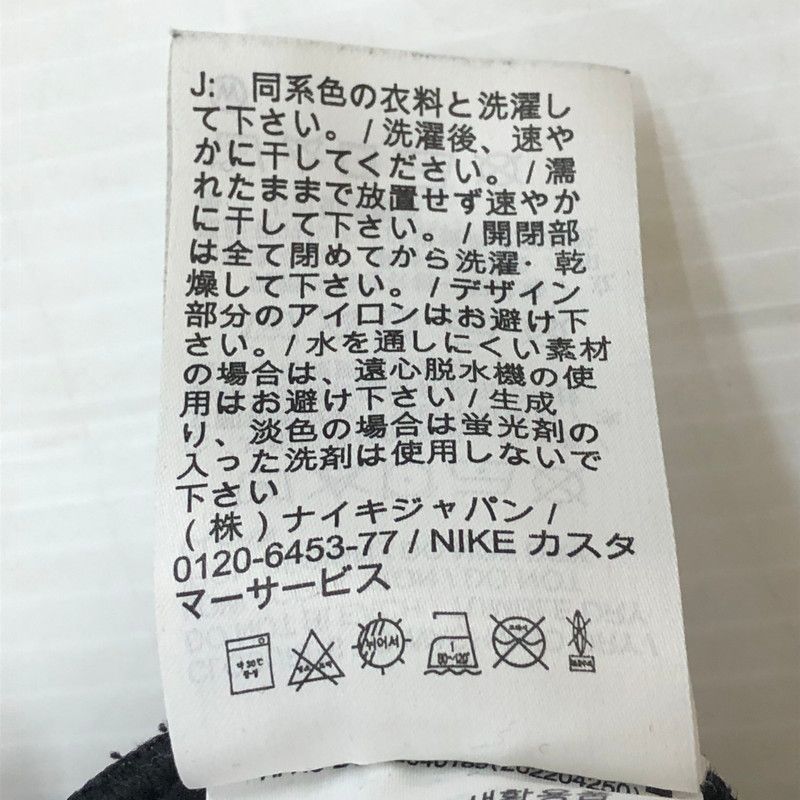 J: 同系色の衣料と洗濯し
て下さい。 / 洗濯後、速や
かに干してください。 / 濡
れたままで放置せず速やか
に干して下さい。 / 開閉部
は全て閉めてから洗濯・乾
燥して下さい。 / デザイン
部分のアイロンはお避け下
さい。/ 水を通しにくい素材
の場合は、遠心脱水機の使
用はお避け下さい / 生成
り、淡色の場合は蛍光剤の
入った洗剤は使用しないで
下さい
(株) ナイキジャパン /
0120-6453-77 / NIKE カスタ
マーサービス
약 30℃
뉘어서